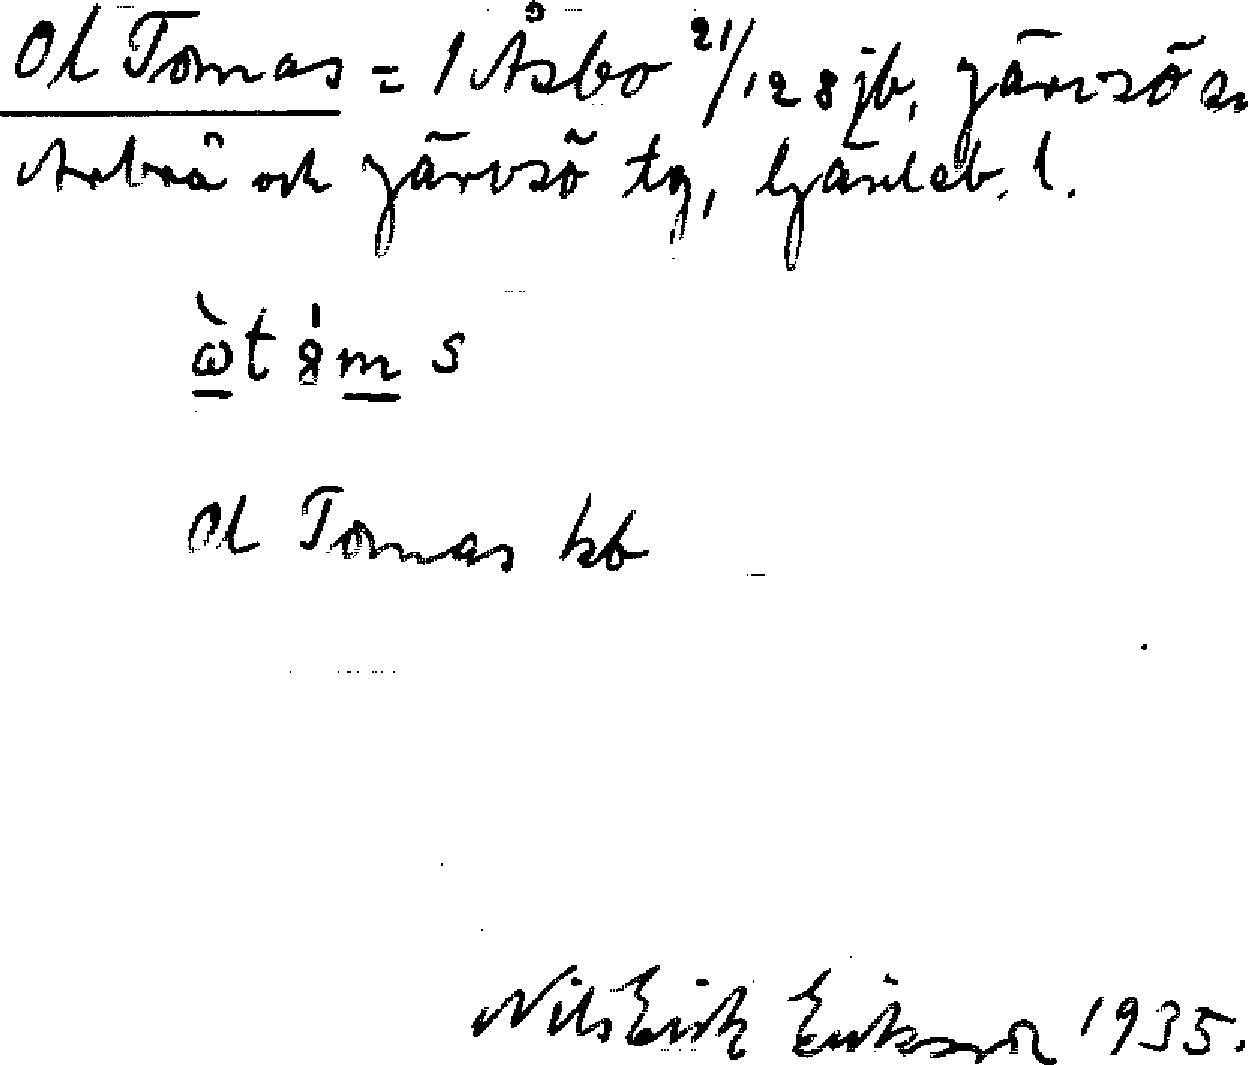 Ol Tomas = 1 Åsbo 21/128 jb, Järvsö sn
Arbrå och Järvsö tg, Gävleb. l.
ὼt ö́m s
Ol Tomas kb
Nils Erik Eriksson 1935.